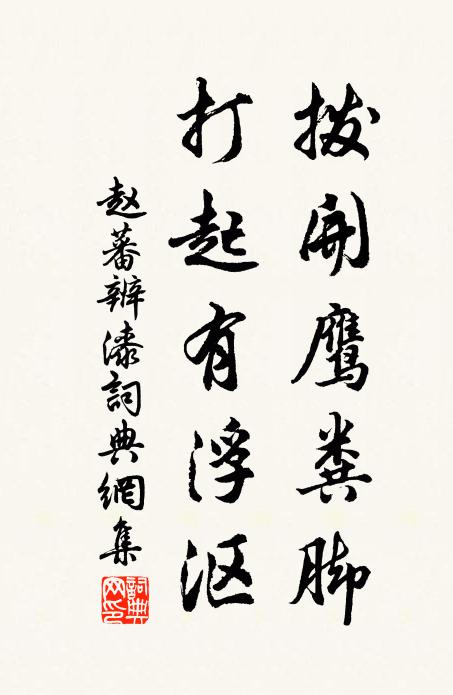 拨开鹰粪脚
打起有浮沤
赵蕃辨漆詞典網集
詞典网印